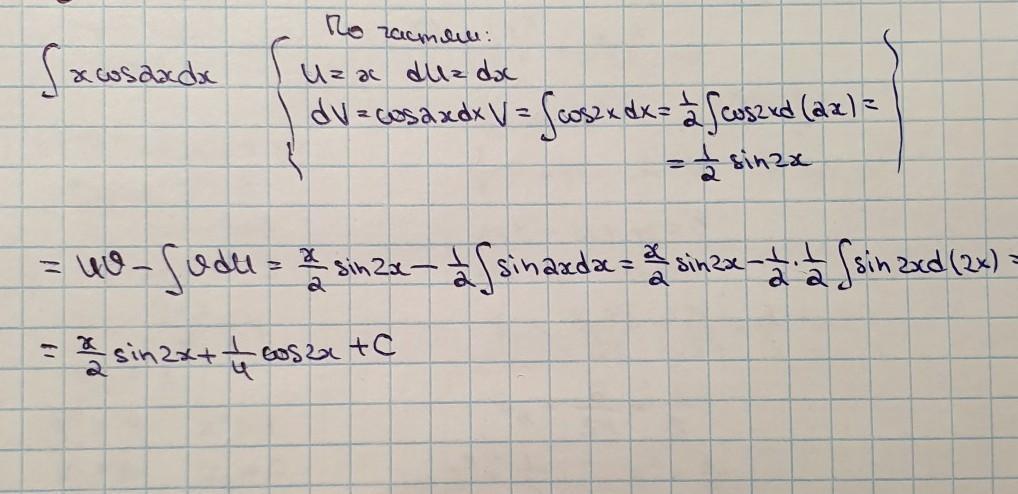 По частям:
∫ x cos2x dx { U = x dU = dx
dV = cos2x dx V = ∫ cos2x dx = 1/2 ∫ cos2x d(2x) =
= 1/2 sin2x }
= uv − ∫ v du = x/2 sin2x − 1/2 ∫ sin2x dx = x/2 sin2x − 1/2 · 1/2 ∫ sin2x d(2x) =
= x/2 sin2x + 1/4 cos2x + C